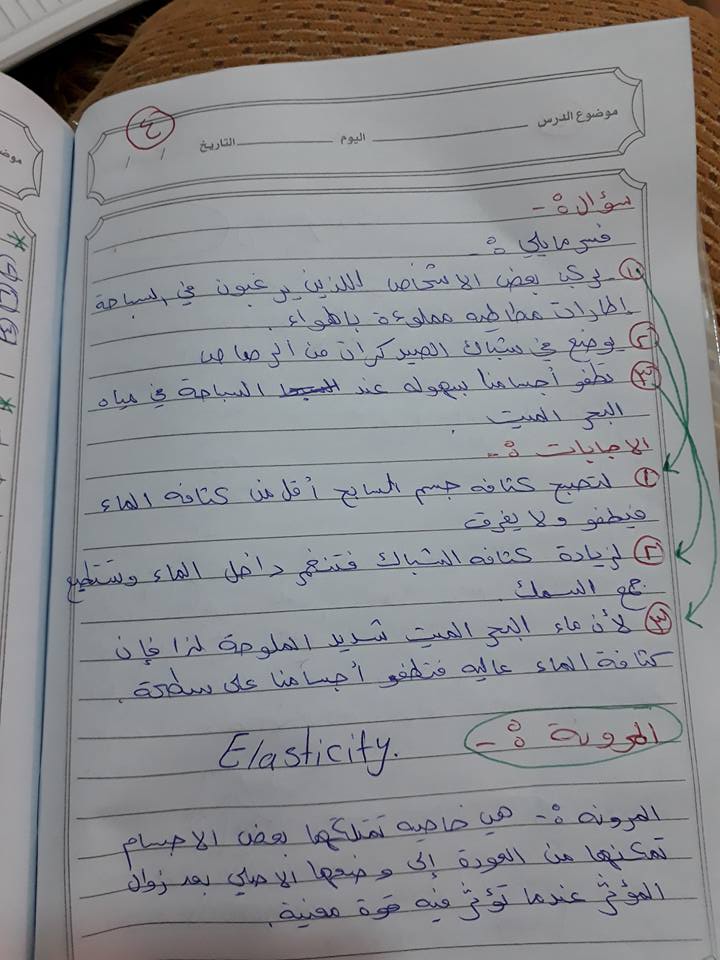 موضوع الدرس اليوم التاريخ
٤
/ /
سؤال :-
فسر مايلي :-
١ يركب بعض الاشخاص اللذين يرغبون في السباحة
اطارات مطاطيه مملوءة باهواء .
٢ يوضع في شباك الصيد كرات من الرصاص
٣ تطفو أجسامنا بسهوله عند السباحة في مياه
البحر الميت .
الاجابات :-
١ لتصبح كثافه جسم السابح أقل من كثافه الماء
فيطفو ولا يغرق
٢ لزيادة كثافه الشباك فتنغمر داخل الماء وتستطيع
جمع السمك .
٣ لأن ماء البحر الميت شديد الملوحة لذا فإن
كثافة الماء عاليه فتطفو أجسامنا على سطحة .
المرونة :-
Elasticity.
المرونه :- هي خاصيه تمتلكها بعض الاجسام
تمكنها من العودة إلى وضعها الاصلي بعد زوال
المؤثر عندما تؤثر فيه قوة معينة .